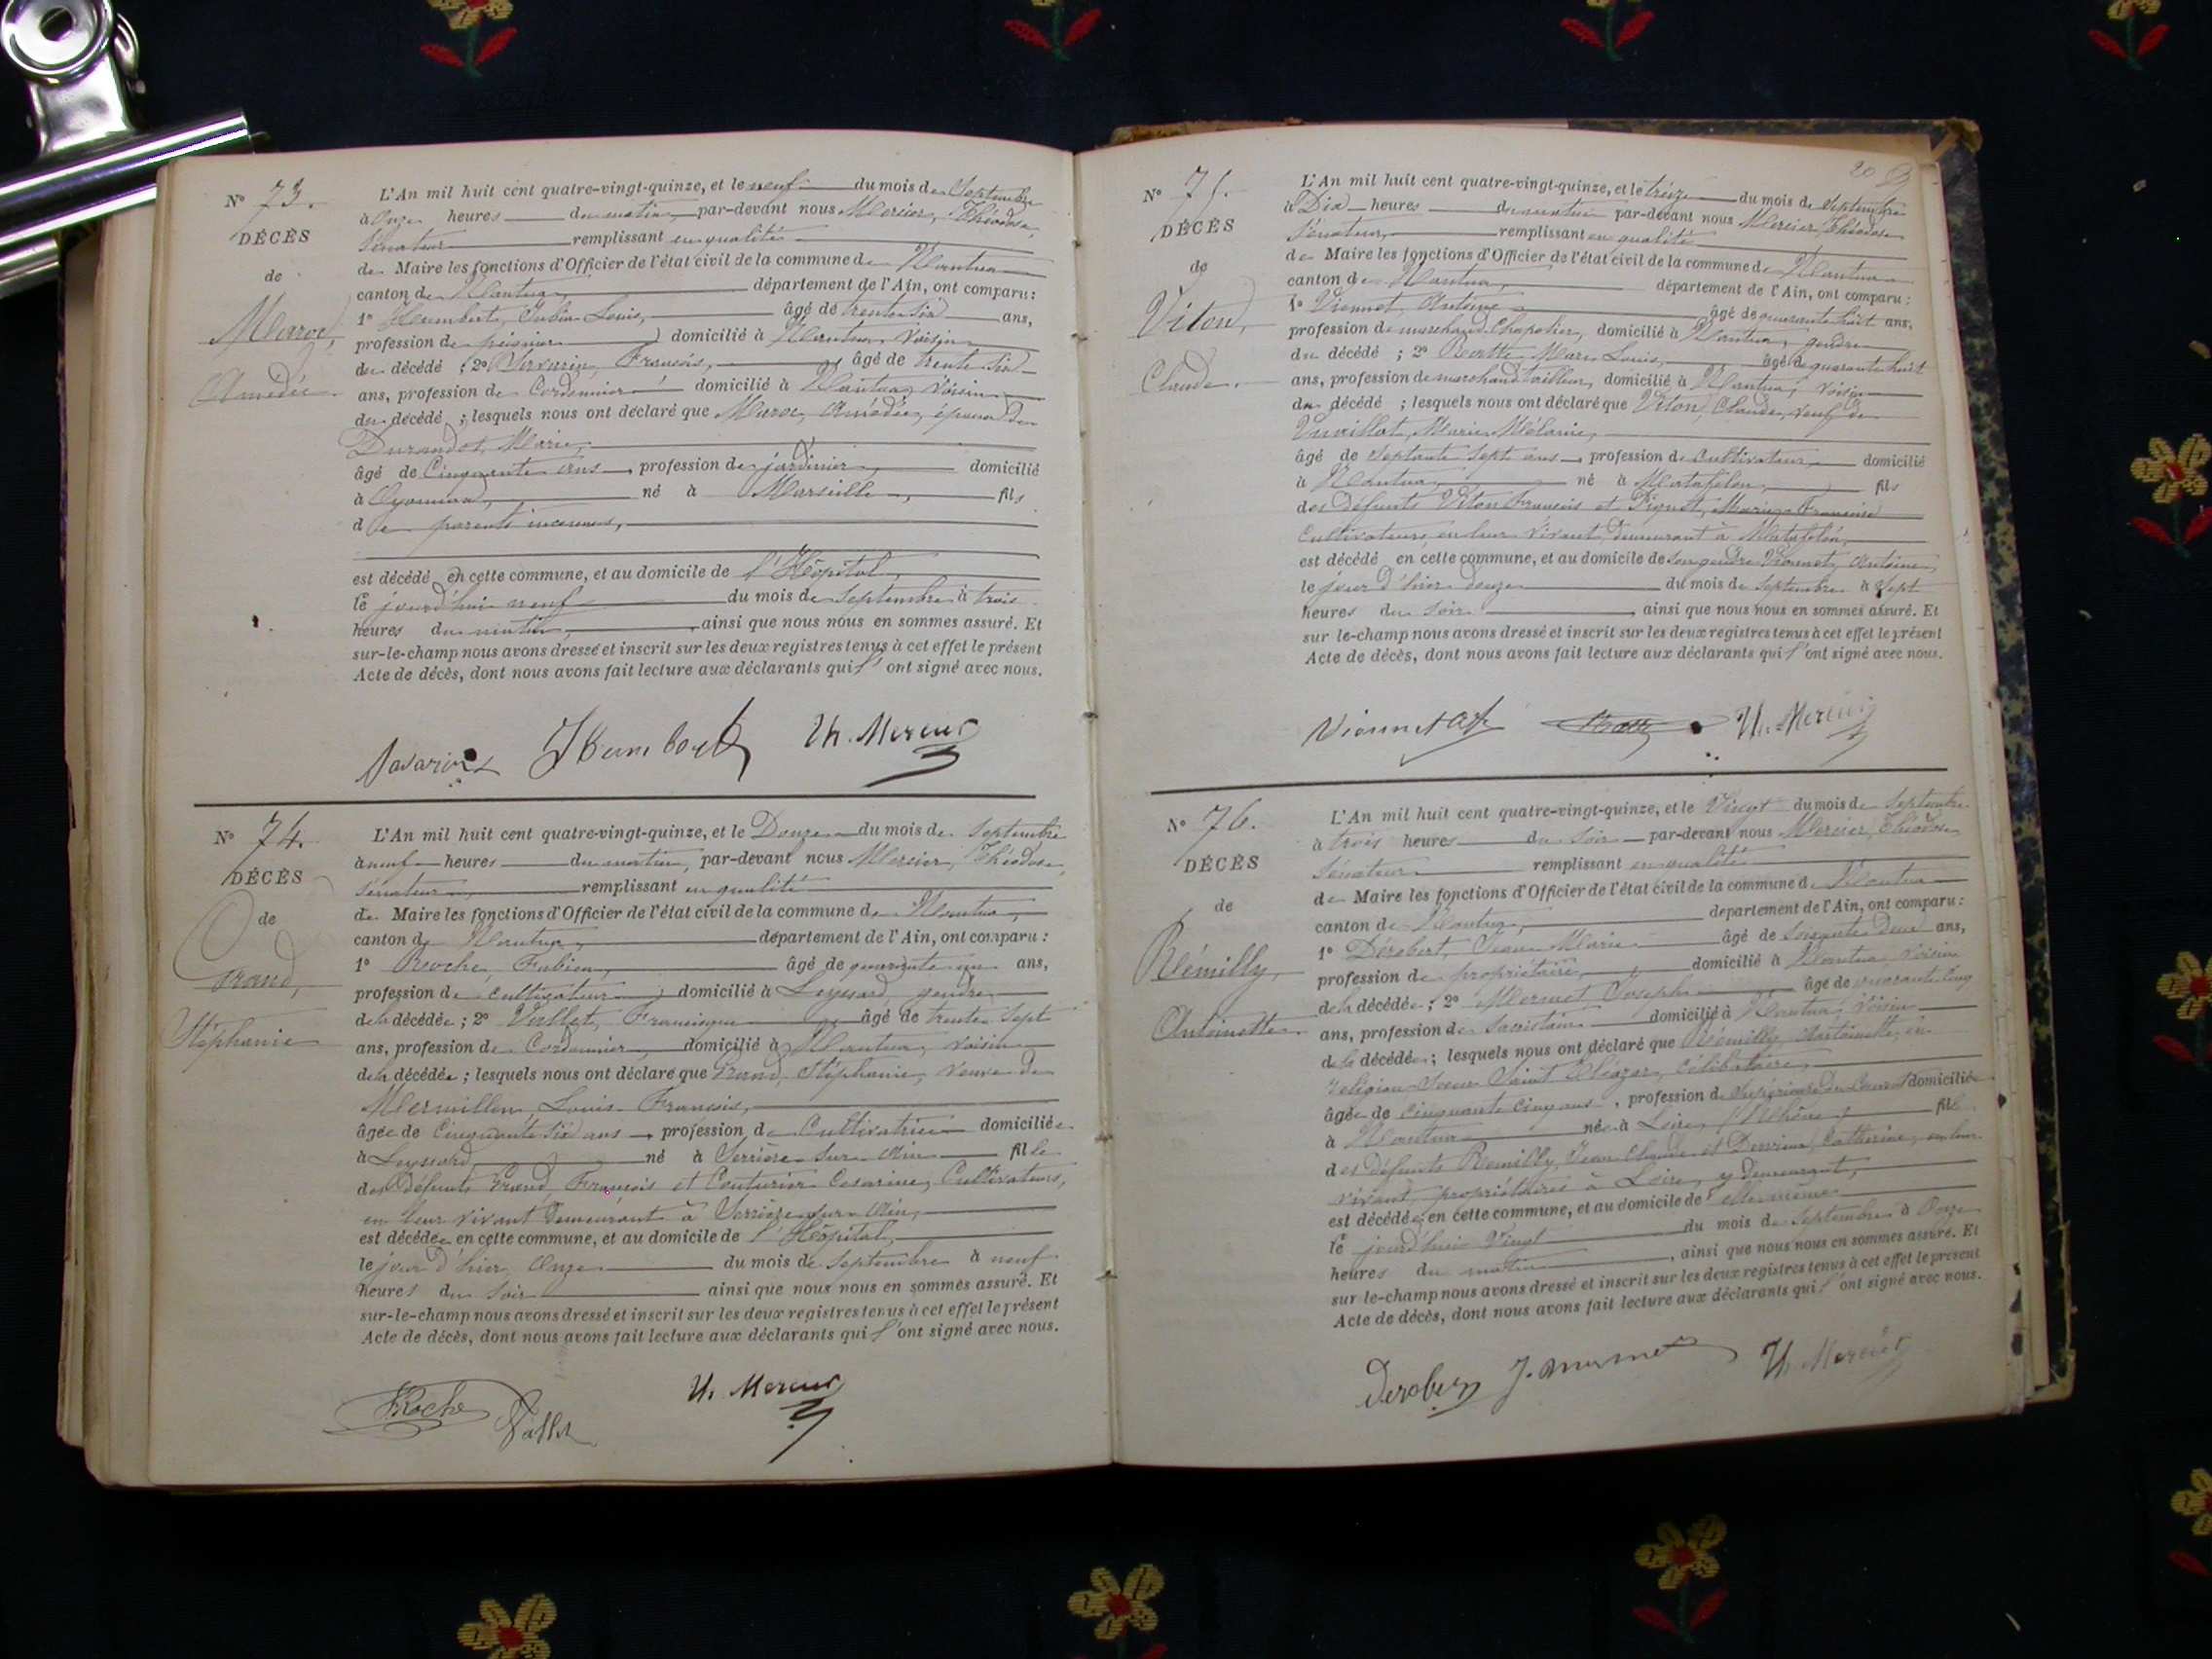 N° 73.
DÉCÈS
de
Maroc,
Amédée.
L'An mil huit cent quatre-vingt-quinze, et le neuf du mois de Septembre
à Onze heures du matin, par-devant nous Mercier, Théodose,
Sénateur remplissant en qualité
de Maire les fonctions d'Officier de l'état civil de la commune de Nantua
canton de Nantua, département de l'Ain, ont comparu :
1° Humbert, Louis, âgé de trente six ans,
profession de domicilié à Nantua, voisin
du décédé ; 2° Savarin, François, âgé de trente six
ans, profession de Cordonnier domicilié à Nantua, voisin
du décédé ; lesquels nous ont déclaré que Maroc, Amédée, époux de
Durandot, Marie,
âgé de Cinquante ans, profession de jardinier, domicilié
à Oyonnax, né à Marseille, fils
de parents inconnus,
est décédé en cette commune, et au domicile de l'Hôpital,
le jourd'hui neuf du mois de Septembre à trois
heures du matin, ainsi que nous nous en sommes assuré. Et
sur-le-champ nous avons dressé et inscrit sur les deux registres tenus à cet effet le présent
Acte de décès, dont nous avons fait lecture aux déclarants qui l'ont signé avec nous.
Savarin Humbert Th. Mercier
N° 74.
DÉCÈS
de
Grand,
Stéphanie
L'An mil huit cent quatre-vingt-quinze, et le Douze du mois de Septembre
à neuf heures du matin, par-devant nous Mercier, Théodose,
Sénateur, remplissant en qualité
de Maire les fonctions d'Officier de l'état civil de la commune de Nantua,
canton de Nantua, département de l'Ain, ont comparu :
1° Roche, Fabien, âgé de quarante un ans,
profession de cultivateur, domicilié à Leyssard, gendre
de la décédée ; 2° Vallet, Françisque âgé de trente sept
ans, profession de Cordonnier, domicilié à Nantua, voisin
de la décédée ; lesquels nous ont déclaré que Grand, Stéphanie, veuve de
Mermillon, Louis François,
âgée de Cinquante six ans, profession de Cultivatrice domiciliée
à Leyssard, né à Serrières sur Ain fille
des défunts Grand, François et Couturier Césarine, Cultivateurs,
en leur vivant demeurant à Serrières sur Ain,
est décédée en cette commune, et au domicile de l'Hôpital,
le jour d'hier Onze du mois de Septembre à neuf
heures du soir ainsi que nous nous en sommes assuré. Et
sur-le-champ nous avons dressé et inscrit sur les deux registres tenus à cet effet le présent
Acte de décès, dont nous avons fait lecture aux déclarants qui l'ont signé avec nous.
FRoche Vallet Th. Mercier
20
N° 75.
DÉCÈS
de
Viton,
Claude.
L'An mil huit cent quatre-vingt-quinze, et le treize du mois de Septembre
à Dix heures du matin par-devant nous Mercier, Théodose
Sénateur, remplissant en qualité
de Maire les fonctions d'Officier de l'état civil de la commune de Nantua
canton de Nantua, département de l'Ain, ont comparu :
1° Vionnet, Antoine âgé de quarante huit ans,
profession de marchand Chapelier, domicilié à Nantua, gendre
du décédé ; 2° Marc Louis, âgé de quarante huit
ans, profession de marchand tailleur, domicilié à Nantua, voisin
du décédé ; lesquels nous ont déclaré que Viton, Claude, veuf de
Vuaillat, Marie Mélanie,
âgé de septante sept ans, profession de cultivateur domicilié
à Nantua, né à Matafélon, fils
des défunts Viton François et Marie Françoise
Cultivateurs, en leur vivant demeurant à Matafélon,
est décédé en cette commune, et au domicile de son gendre Vionnet, Antoine,
le jour d'hier douze du mois de Septembre à Sept
heures du soir, ainsi que nous nous en sommes assuré. Et
sur le-champ nous avons dressé et inscrit sur les deux registres tenus à cet effet le présent
Acte de décès, dont nous avons fait lecture aux déclarants qui l'ont signé avec nous.
Vionnet Th. Mercier
N° 76.
DÉCÈS
de
Rémilly,
Antoinette
L'An mil huit cent quatre-vingt-quinze, et le Vingt du mois de Septembre
à trois heures du soir par-devant nous Mercier, Théodose
Sénateur remplissant en qualité
de Maire les fonctions d'Officier de l'état civil de la commune de Nantua
canton de Nantua, département de l'Ain, ont comparu :
1° Dérobert, Jean Marie âgé de soixante deux ans,
profession de propriétaire, domicilié à Nantua, voisin
de la décédée ; 2° Mermet Joseph âgé de quarante cinq
ans, profession de sacristain domicilié à Nantua, voisin
de la décédée ; lesquels nous ont déclaré que Rémilly, Antoinette, en
religion Soeur Saint Eléazar, célibataire,
âgée de Cinquante Cinq ans, profession de Supérieure du Couvent domiciliée
à Nantua née à Loire, (Rhône) fille
des défunts Rémilly, Jean Claude et Catherine, en leur
vivant propriétaires à Loire, y demeurant,
est décédée en cette commune, et au domicile de elle même
le jourd'hui Vingt du mois de Septembre à Onze
heures du matin, ainsi que nous nous en sommes assuré. Et
sur le-champ nous avons dressé et inscrit sur les deux registres tenus à cet effet le présent
Acte de décès, dont nous avons fait lecture aux déclarants qui l'ont signé avec nous.
Derobert J. Mermet Th. Mercier